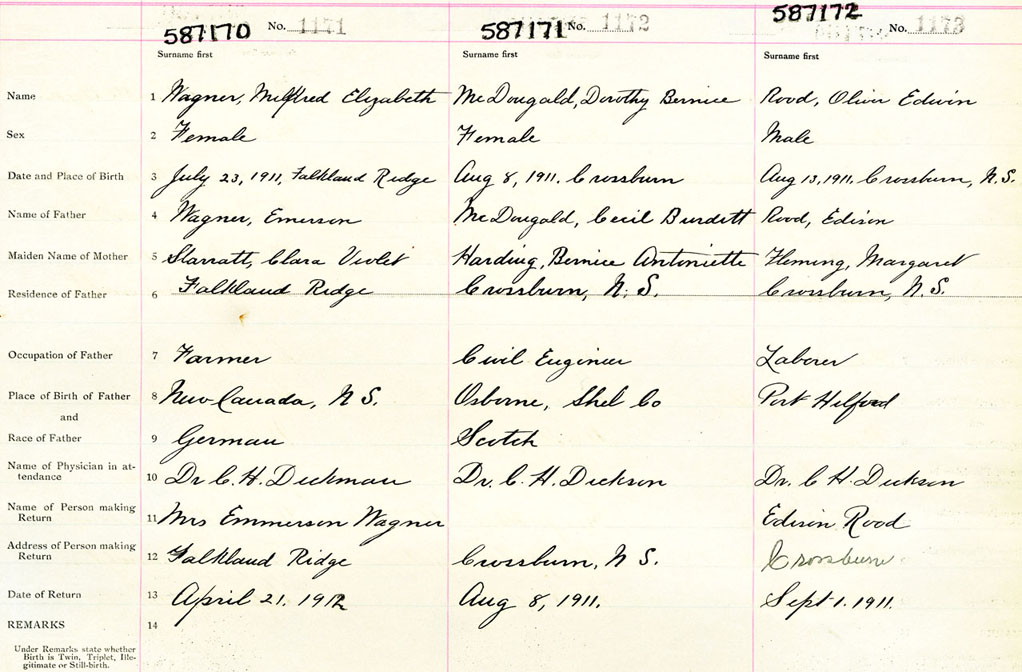 587170 No. 1171 587171 No. 1172 587172 No. 1173
Surname first Surname first Surname first
Name 1 Wagner, Mildred Elizabeth McDougald, Dorothy Bernice Rood, Oliver Edwin
Sex 2 Female Female Male
Date and Place of Birth 3 July 23, 1911, Falkland Ridge Aug 8, 1911. Crossburn Aug 13, 1911. Crossburn, N.S.
Name of Father 4 Wagner, Emerson McDougald, Cecil Burdett Rood, Edison
Maiden Name of Mother 5 Starratt, Clara Violet Harding, Bernice Antoniette Fleming, Margaret
Residence of Father 6 Falkland Ridge Crossburn, N. S. Crossburn, N.S.
Occupation of Father 7 Farmer Civil Engineer Laborer
Place of Birth of Father 8 New Canada, N S. Osborne, Shel Co Port Hilford
and
Race of Father 9 German Scotch
Name of Physician in at-
tendance 10 Dr C. H. Dickman Dr. C. H. Dickson Dr. C H. Dickson
Name of Person making
Return 11 Mrs Emmerson Wagner Edison Rood
Address of Person making
Return 12 Falkland Ridge Crossburn, N S. Crossburn
Date of Return 13 April 21. 1912 Aug 8, 1911. Sept 1. 1911.
REMARKS 14
Under Remarks state whether
Birth is Twin, Triplet, Ille-
gitimate or Still-birth.